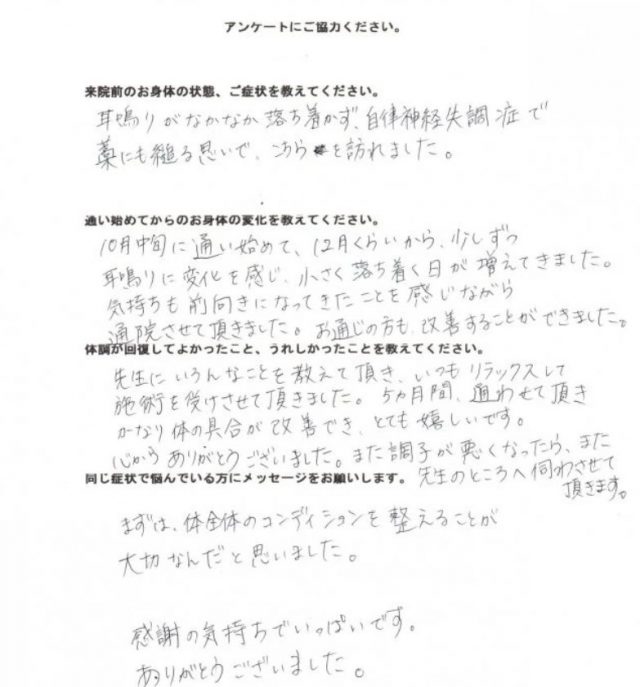 アンケートにご協力ください。
来院前のお身体の状態、ご症状を教えてください。
耳鳴りがなかなか落ち着かず、自律神経失調症で
藁にも縋る思いで、こちらを訪れました。
通い始めてからのお身体の変化を教えてください。
10月中旬に通い始めて、12月くらいから、少しずつ
耳鳴りに変化を感じ、小さく落ち着く日が増えてきました。
気持ちも前向きになってきたことを感じながら
通院させて頂きました。お通じの方も、改善することができました。
体調が回復してよかったこと、うれしかったことを教えてください。
先生にいろんなことを教えて頂き、いつもリラックスして
施術を受けさせて頂きました。5ヵ月間、通わせて頂き
かなり体の具合が改善でき、とても嬉しいです。
心からありがとうございました。また調子が悪くなったら、また
先生のところへ伺わさせて
頂きます。
同じ症状で悩んでいる方にメッセージをお願いします。
まずは、体全体のコンディションを整えることが
大切なんだと思いました。
感謝の気持ちでいっぱいです。
ありがとうございました。